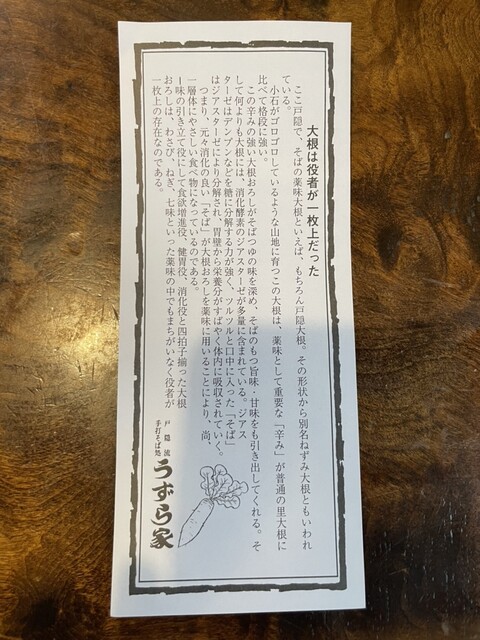 大根は役者が一枚上だった
ここ戸隠で、そばの薬味大根といえば、もちろん戸隠大根。その形状から別名ねずみ大根ともいわれ
ている。
小石がゴロゴロしているような山地に育つこの大根は、薬味として重要な「辛み」が普通の里大根に
比べて格段に強い。
この辛みの強い大根おろしがそばつゆの味を深め、そばのもつ旨味・甘味をも引き出してくれる。そ
して何よりも大根には、消化酵素のジアスターゼが多量に含まれている。ジアス
ターゼはデンプンなどを糖に分解する力が強く、ツルツルと口中に入った「そば」
はジアスターゼにより分解され、胃壁から栄養分がすばやく体内に吸収されていく。
つまり、元々消化の良い「そば」が大根おろしを薬味に用いることにより、尚、
一層体にやさしい食べ物になっているのである。
味の引き立て役にして食欲増進役、健胃役、消化役と四拍子揃った大根
おろしは、わさび、ねぎ、七味といった薬味の中でもまちがいなく役者が
一枚上の存在なのである。
戸隠流
手打そば処
うずら家